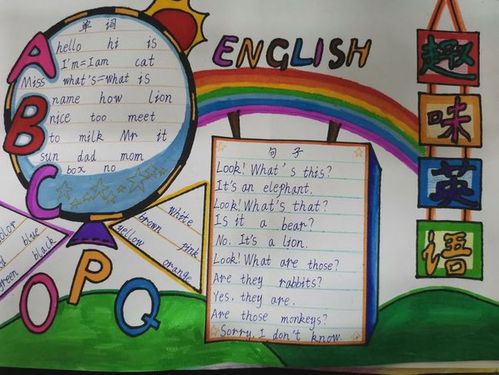 A
B
C
O
P
Q
ENGLISH
单词
hello hi is
I'm=I am cat
Miss what's=what is
name how lion
nice too meet
to milk Mr it
sun dad mom
box no
blue
black
green
brown white
yellow pink
orange
句子
Look! What's this?
It's an elephant.
Look! What's that?
Is it a bear?
No. It's a lion.
Look! What are those?
Are they rabbits?
Yes, they are.
Are those monkeys?
Sorry, I don't know.
趣
味
英
语